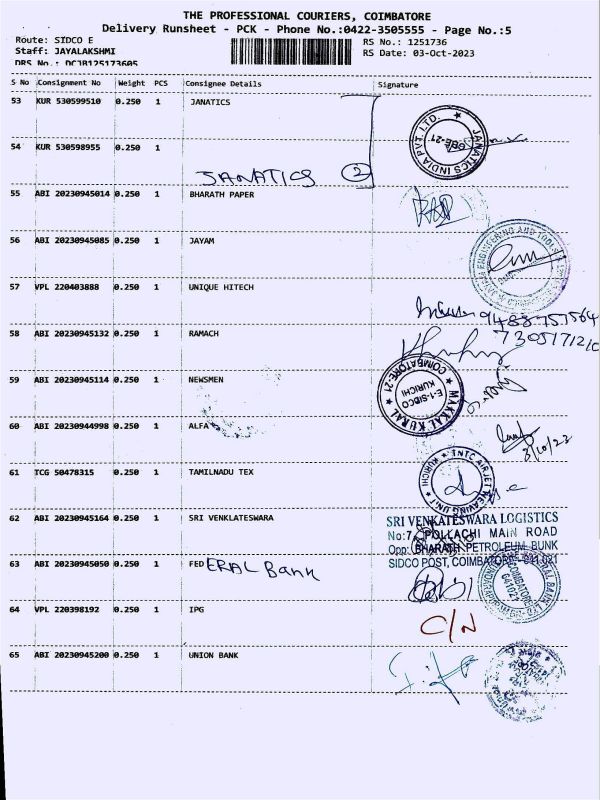 THE PROFESSIONAL COURIERS, COIMBATORE
Delivery Runsheet - PCK - Phone No.:0422-3505555 - Page No.:5
Route: SIDCO E
RS No.: 1251736
Staff: JAYALAKSHMI
RS Date: 03-Oct-2023
DRS No.: DCJB125173605
S No Consignment No Weight PCS Consignee Details Signature
53 KUR 530599510 0.250 1 JANATICS
JANATICS INDIA PVT. LTD.
CBE-21
54 KUR 530598955 0.250 1
JANATICS 2
55 ABI 20230945014 0.250 1 BHARATH PAPER
56 ABI 20230945085 0.250 1 JAYAM
57 VPL 220403888 0.250 1 UNIQUE HITECH
9488757564
58 ABI 20230945132 0.250 1 RAMACH
59 ABI 20230945114 0.250 1 NEWSMEN
MAKKAL KURAL
COIMBATORE-21
E-1-SIDCO
KURICHI
60 ABI 20230944998 0.250 1 ALFA
3/10/23
61 TCG 50478315 0.250 1 TAMILNADU TEX
TNTC AIRJET WEAVING UNIT
KURICHI
62 ABI 20230945164 0.250 1 SRI VENKLATESWARA
SRI VENKATESWARA LOGISTICS
No:7, POLLACHI MAIN ROAD
Opp: BHARATH PETROLEUM BUNK
SIDCO POST, COIMBATORE- 641 021
63 ABI 20230945050 0.250 1 FEDERAL Bank
COIMBATORE
641021
64 VPL 220398192 0.250 1 IPG
C/N
65 ABI 20230945200 0.250 1 UNION BANK